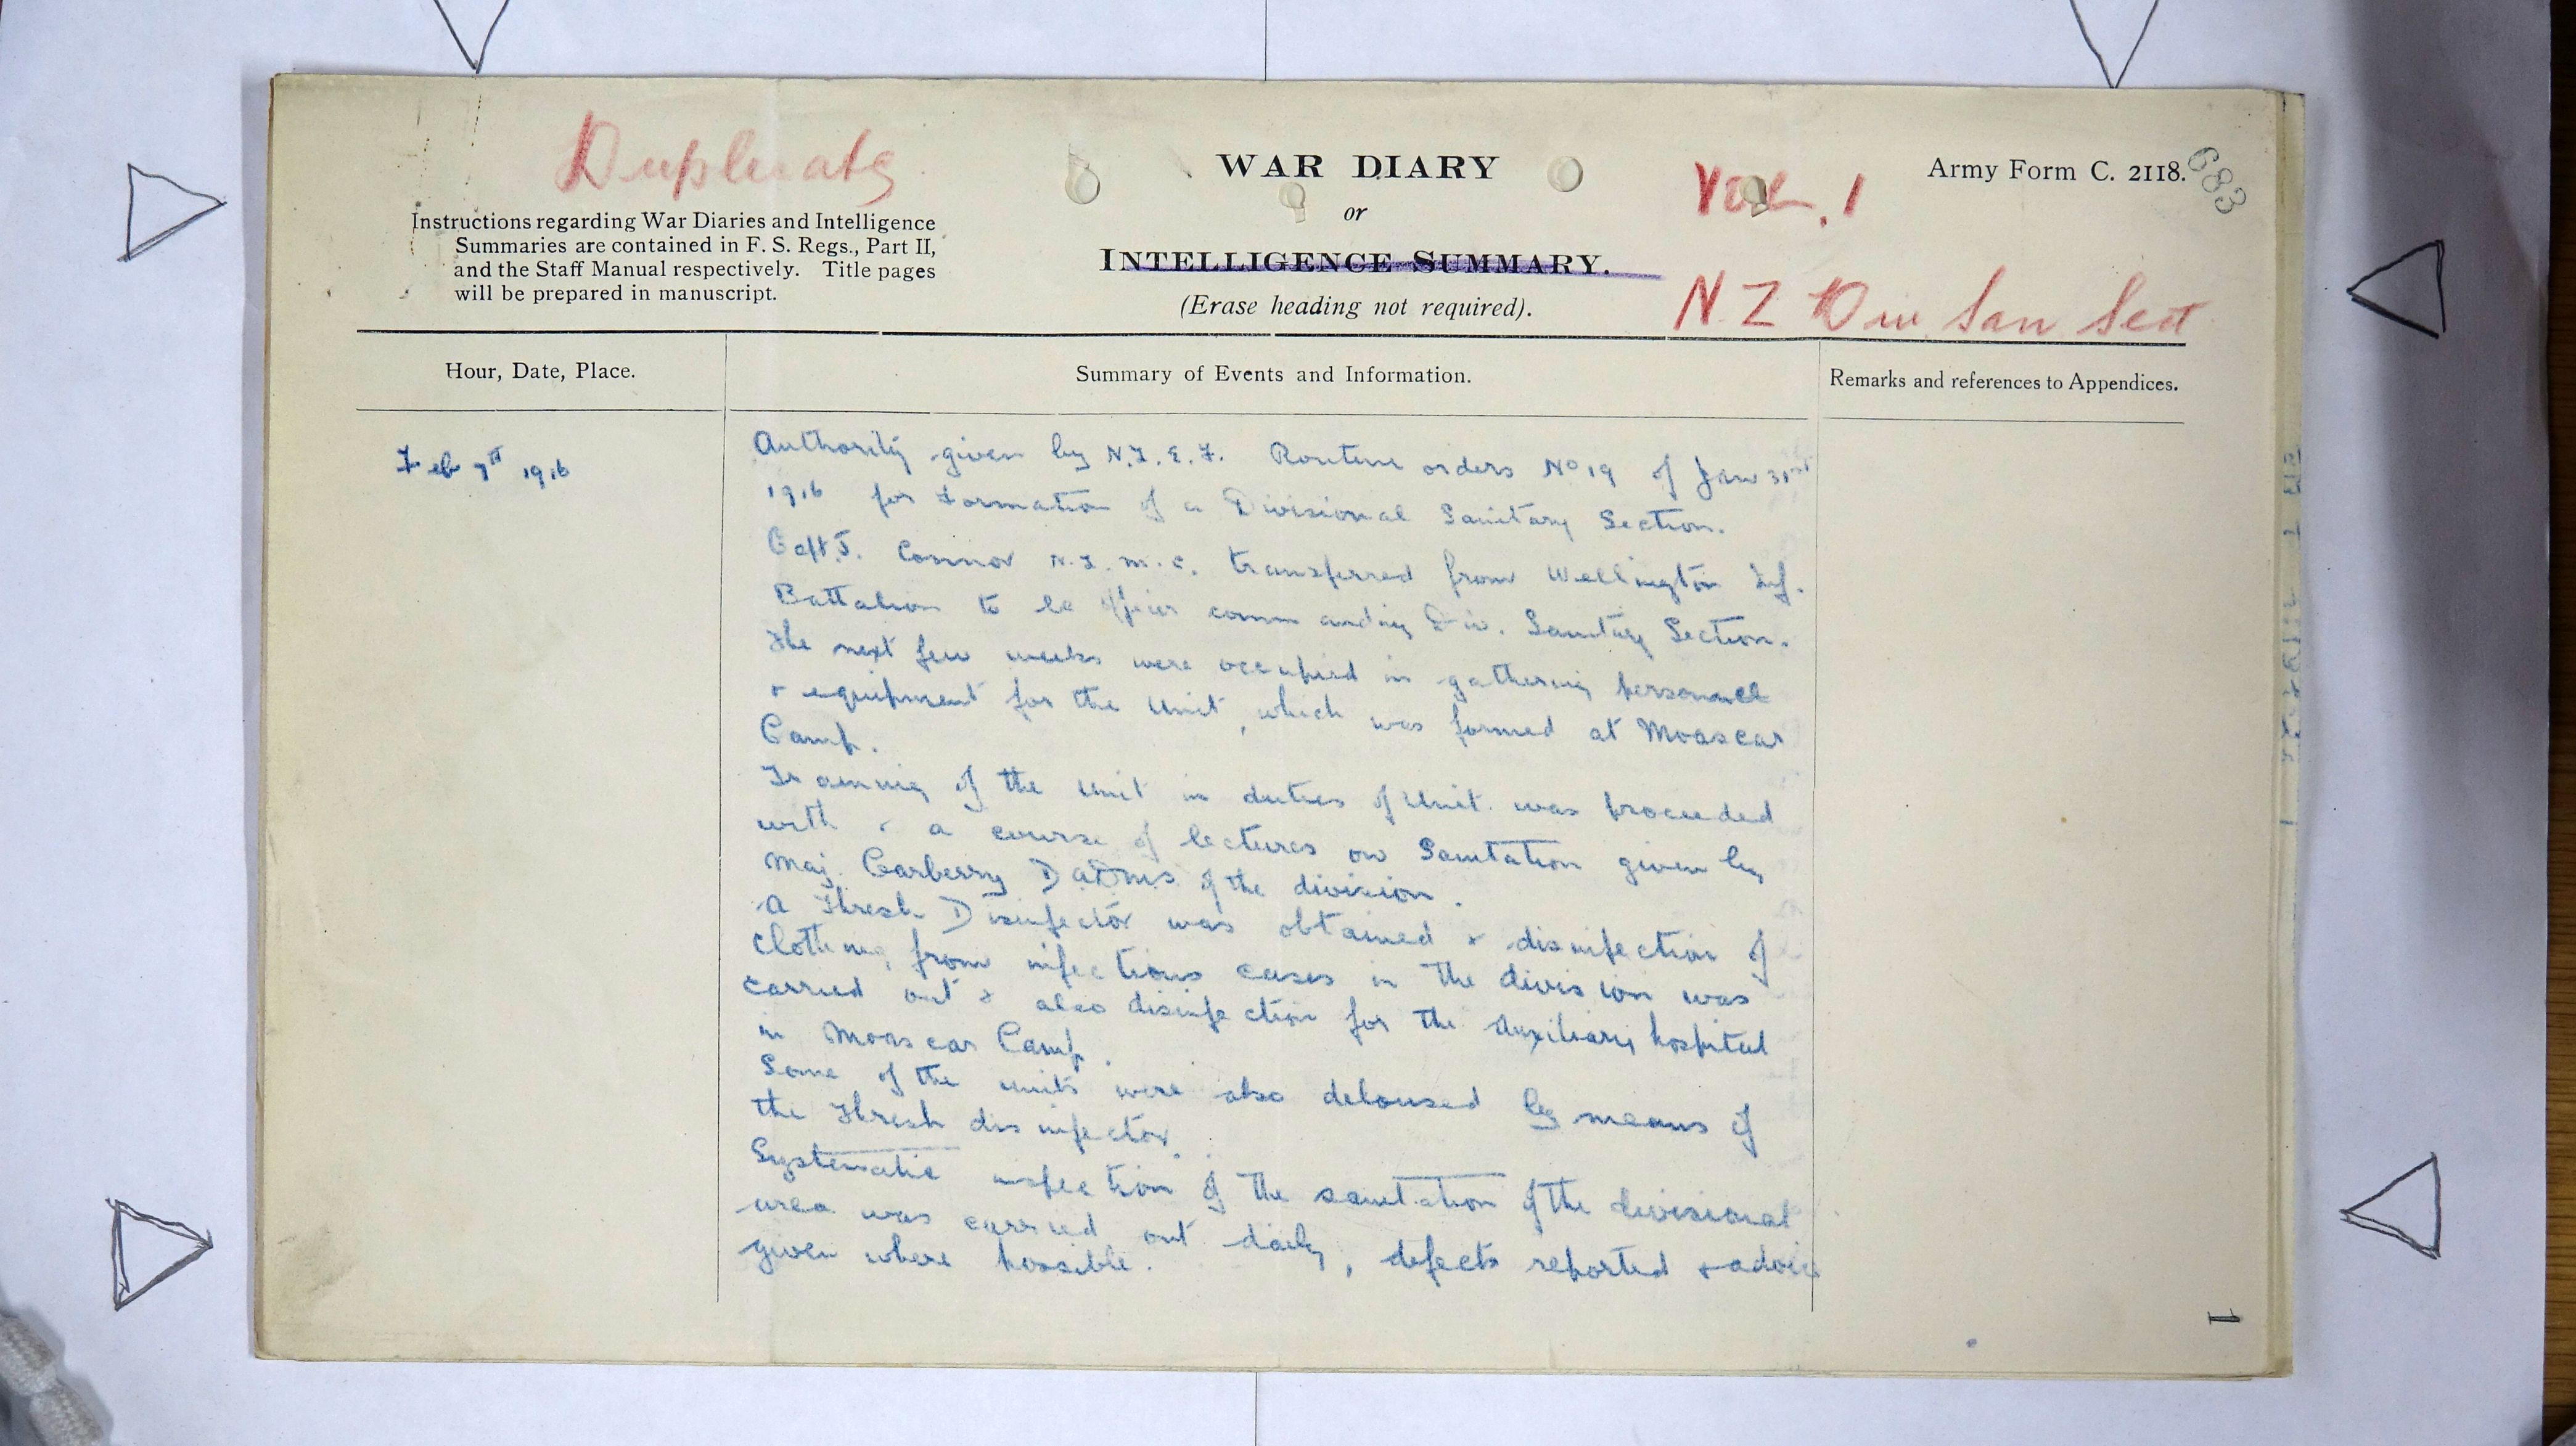 Duplicate
WAR DIARY
or
INTELLIGENCE SUMMARY.
(Erase heading not required).
Vol. 1
Army Form C. 2118.
683
N Z Div San Sect
Instructions regarding War Diaries and Intelligence
Summaries are contained in F. S. Regs., Part II,
and the Staff Manual respectively. Title pages
will be prepared in manuscript.
Hour, Date, Place.
Summary of Events and Information.
Remarks and references to Appendices.
Feb 7th 1916
Authority given by N.Z.E.F. Routine orders No 19 of Jan 31st
1916 for Formation of a Divisional Sanitary Section.
Capt J. Connor N.Z.M.C. transferred from Wellington Inf.
Battalion to be officer commanding Div. Sanitary Section.
The next few weeks were occupied in gathering personnel
& equipment for the Unit, which was formed at Moascar
Camp.
Training of the Unit in duties of Unit was proceeded
with & a course of lectures on Sanitation given by
Maj. Carberry DADMS of the division.
A Thresh Disinfector was obtained & disinfection of
clothing from infectious cases in the division was
carried out & also disinfection for the Auxiliary hospital
in Moascar Camp.
Some of the units were also deloused by means of
the Thresh disinfector.
Systematic inspection of the sanitation of the divisional
area was carried out daily, defects reported & advice
given where possible.
1